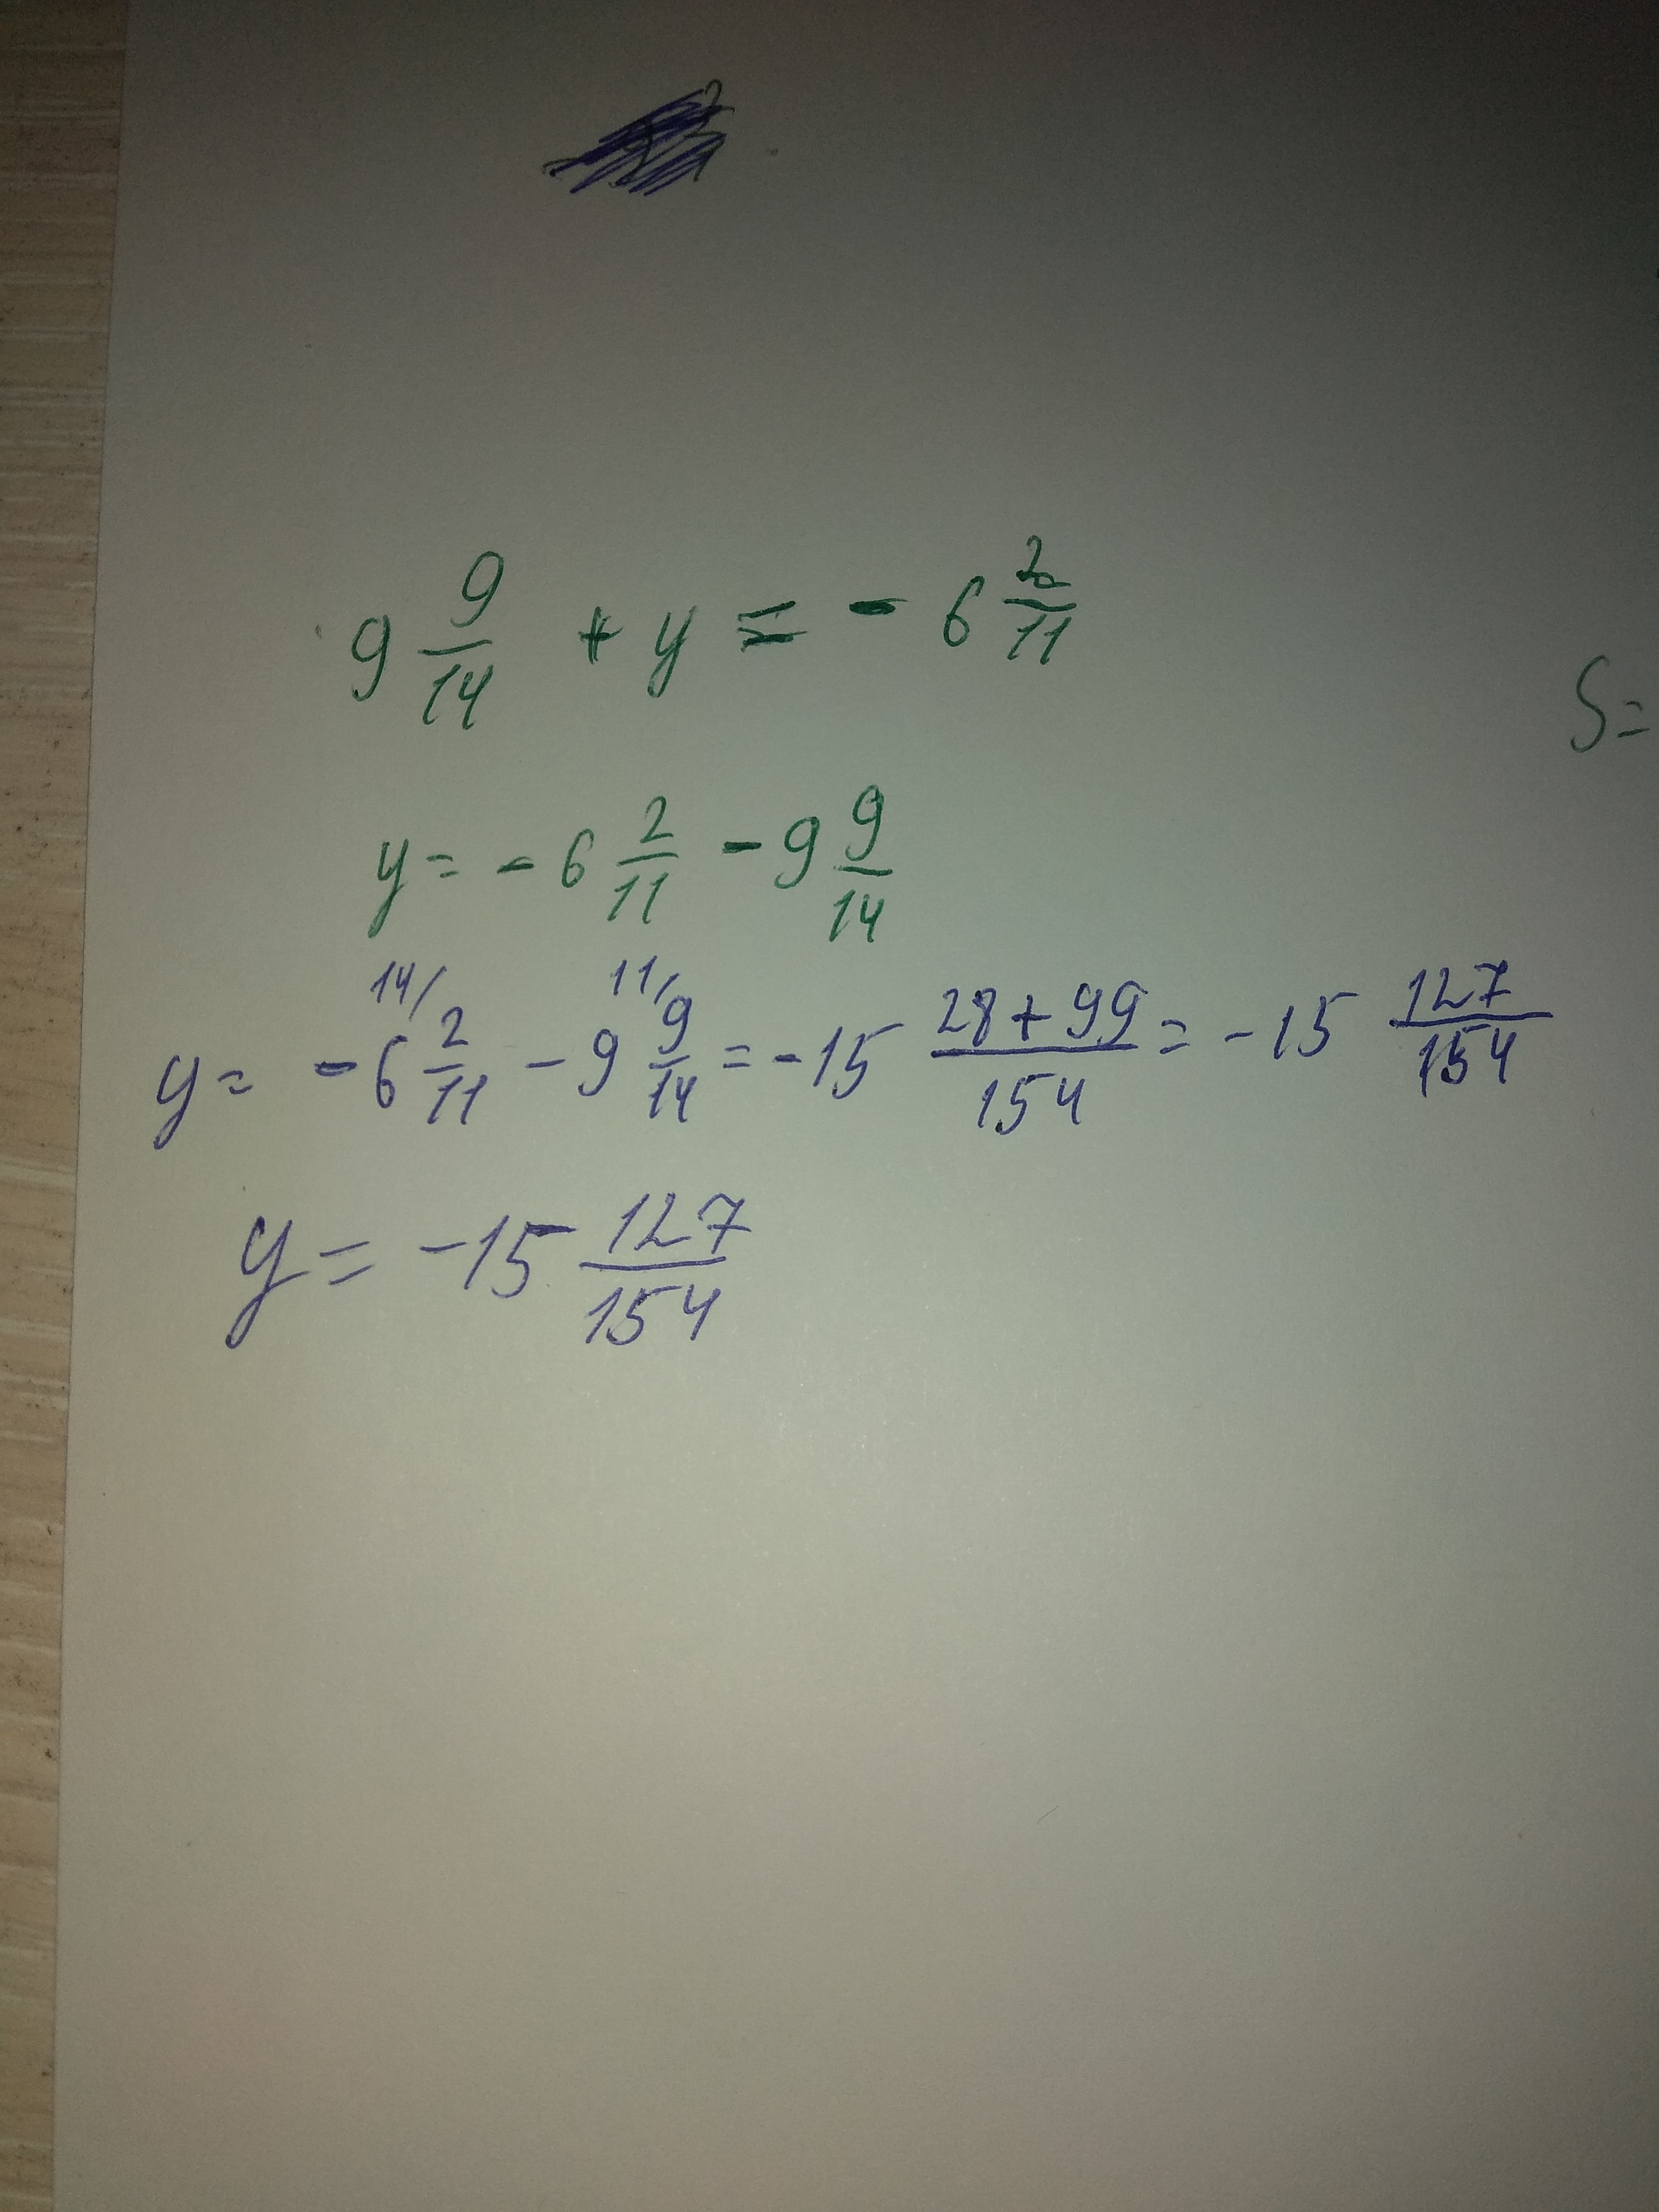 9 9/14 + y = - 6 2/11
S=
y = - 6 2/11 - 9 9/14
y = - 6 2/11 14/ - 9 9/14 11/ = - 15 28+99/154 = - 15 127/154
y = - 15 127/154